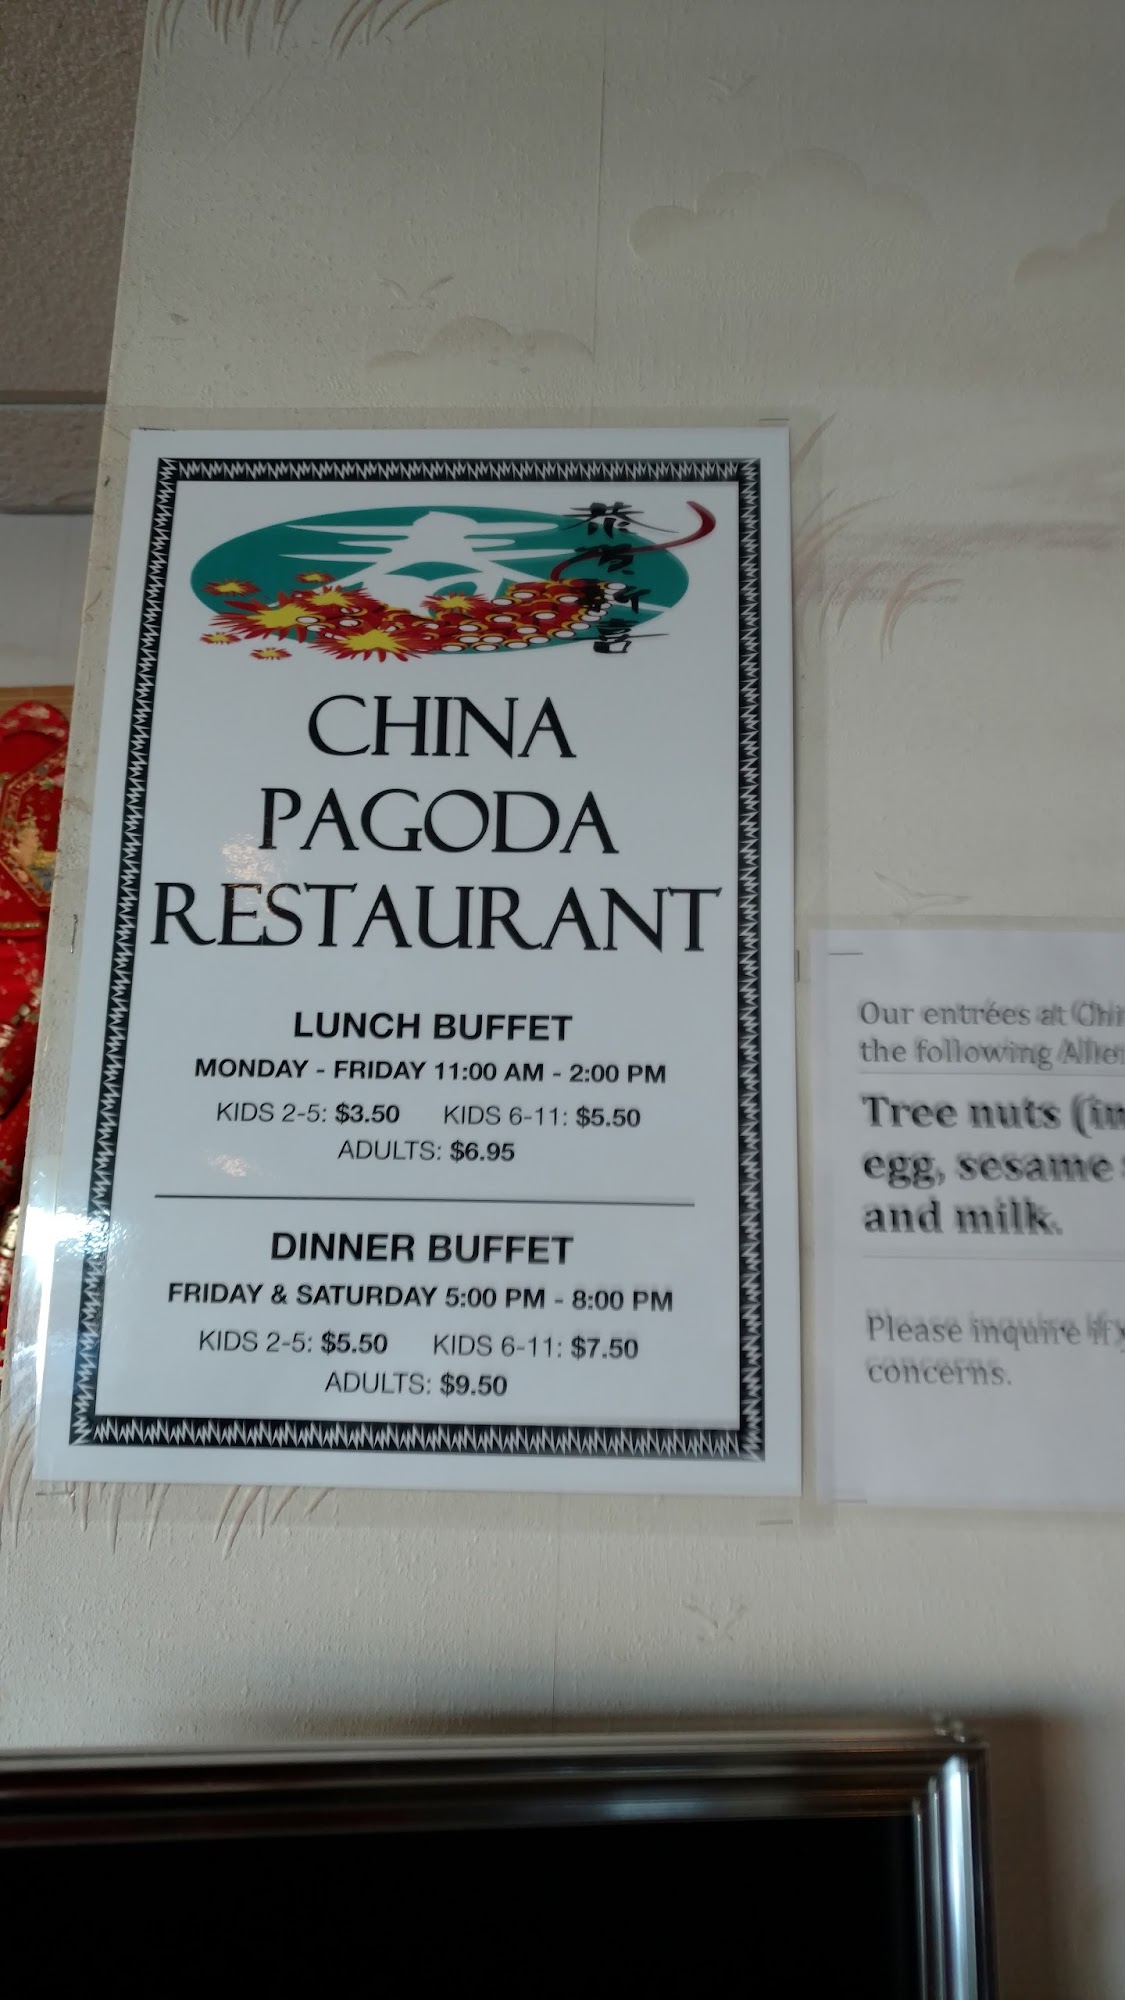 恭賀新喜
CHINA
PAGODA
RESTAURANT
LUNCH BUFFET
MONDAY - FRIDAY 11:00 AM - 2:00 PM
KIDS 2-5: $3.50 KIDS 6-11: $5.50
ADULTS: $6.95
DINNER BUFFET
FRIDAY & SATURDAY 5:00 PM - 8:00 PM
KIDS 2-5: $5.50 KIDS 6-11: $7.50
ADULTS: $9.50
Our entrées at
the following
Tree nuts
egg, sesame
and milk.
Please inquire if
concerns.